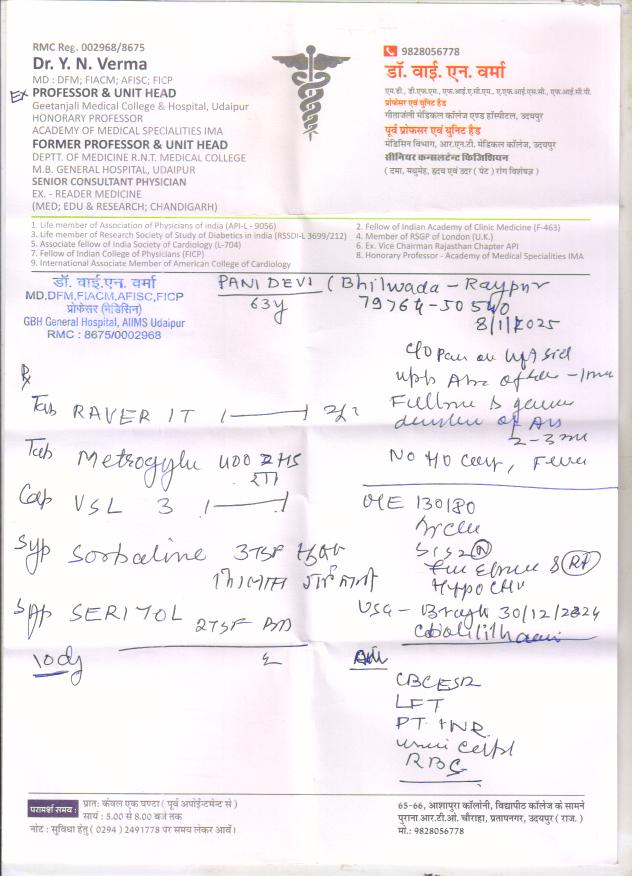 RMC Reg. 002968/8675
Dr. Y. N. Verma
MD : DFM; FIACM; AFISC; FICP
Ex PROFESSOR & UNIT HEAD
Geetanjali Medical College & Hospital, Udaipur
HONORARY PROFESSOR
ACADEMY OF MEDICAL SPECIALITIES IMA
FORMER PROFESSOR & UNIT HEAD
DEPTT. OF MEDICINE R.N.T. MEDICAL COLLEGE
M.B. GENERAL HOSPITAL, UDAIPUR
SENIOR CONSULTANT PHYSICIAN
EX. - READER MEDICINE
(MED; EDU & RESEARCH; CHANDIGARH)
9828056778
डॉ. वाई. एन. वर्मा
एम.डी., डी.एफ.एम., एफ.आई.ए.सी.एम., ए.एफ.आई.एस.सी., एफ.आई.सी.पी.
प्रोफेसर एवं यूनिट हैड
गीतांजली मेडिकल कॉलेज एण्ड हॉस्पीटल, उदयपुर
पूर्व प्रोफेसर एवं यूनिट हैड
मेडिसिन विभाग, आर.एन.टी. मेडिकल कॉलेज, उदयपुर
सीनियर कन्सलटेन्ट फिजिशियन
( दमा, मधुमेह, हृदय एवं उदर ( पेट ) रोग विशेषज्ञ )
1. Life member of Association of Physicians of india (API-L - 9056)
2. Fellow of Indian Academy of Clinic Medicine (F-463)
3. Life member of Research Society of Study of Diabetics in india (RSSDI-L 3699/212)
4. Member of RSGP of London (U.K.)
5. Associate fellow of India Society of Cardiology (L-704)
6. Ex. Vice Chairman Rajasthan Chapter API
7. Fellow of Indian College of Physicians (FICP)
8. Honorary Professor - Academy of Medical Specialities IMA
9. International Associate Member of American College of Cardiology
डॉ. वाई.एन. वर्मा
MD,DFM,FIACM,AFISC,FICP
प्रोफेसर (मेडिसिन)
GBH General Hospital, AIIMS Udaipur
RMC : 8675/0002968
PANI DEVI (Bhilwada - Raypur
63y
79764-50540
8/1/2025
C/O Pain on left side
2-3
No H/O , Fever
Rx
Tab RAVER IT
Tab Metrogyl 400
Cap VSL 3
Syp Sorbaline 3TSF
Syp SERITOL 2TSF BD
10 dy
O/E 130/80
S1S2 (N)
Hypo
USG - 30/12/2024
Adv
CBC ESR
LFT
PT INR
RBS
परामर्श समय :
प्रात: केवल एक घण्टा ( पूर्व अपोईन्टमेन्ट से )
सायं : 5.00 से 8.00 बजे तक
नोट : सुविधा हेतु ( 0294 ) 2491778 पर समय लेकर आवें।
65-66, आशापुरा कॉलोनी, विद्यापीठ कॉलेज के सामने
पुराना आर.टी.ओ. चौराहा, प्रतापनगर, उदयपुर ( राज. )
मो.: 9828056778